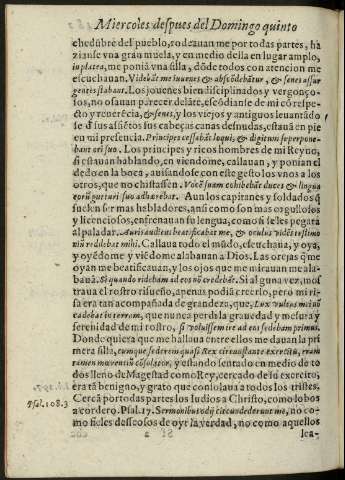 Miercoles despues del Domingo quinto
chedũbre del pueblo, rodeauan me por todas partes, ha
zianse vna grau muela, y en medio della en lugar amplo,
in platea, me poniã vna silla, dõde todos con atencion me
escuchauan. Videbãt me iuuenes & abscõdebãtur, & senes assur
gentes stabant. Los jouenes biendisciplinados y vergonço-
sos, no osauan parecer delãte, escõdianse de mi cõ respe-
cto y reuerẽcia, & senes, y los viejos y antiguos leuantãdo
se d̃ sus assiẽtos sus cabeças canas desnudas, estauã en pie
en mi presencia. Principes cessabãt loqui, & digitum superpone-
bant ori suo. Los principes y ricos hombres de mi Reyno,
si estauan hablando, en viendome, callauan, y ponian el
dedo en la boca, auisandose con este gesto los vnos a los
otros, que no chistassen. Vocẽ suam cohibebãt duces & lingua
eorũ gutturi suo adhærebat. Aun los capitanes y soldados q̃
suelen ser mas habladores, ansi como son mas orgullosos
y licenciosos, enfrenauan su lengua, como si se les pegara
al paladar. Auris audiens beatificabat me, & oculus vidẽs testimo
niũ reddebat mihi. Callaua todo el mũdo, escuchaua, y oya,
y oyẽdome y viẽdome alabauan a Dios. Las orejas q̃ me
oyan me beatificauan, y los ojos que me mirauan me ala-
bauã. Si quando ridebam ad eos nõ credebãt. Si alguna vez, mos
traua el rostro risueño, apenas podiã creerlo, pero mi ri-
sa era tan acompañada de grandeza, que, Lux vultus mei nõ
cadebat in terram, que nunca perdi la grauedad y mesura y
serenidad de mi rostro, si voluissem ire ad eos sedebam primus.
Donde quiera que me hallaua entre ellos me dauan la pri
mera silla, cumque sederem quasi Rex circunstante exercitu, eram
tamen mœrentiũ cõsolator, y estando sentado en medio de to
dos lleno de Magestad como Rey, cercado de su exercito,
era tã benigno, y grato que consolaua a todos los tristes.
Cercã por todas partes los Iudios a Christo, como lobos
Psal. 108. 3
a cordero. Psal. 17. Sermonibus odij circundederunt me, no co-
mo fieles desseosos de oyr la verdad, no como aquellos
lea-